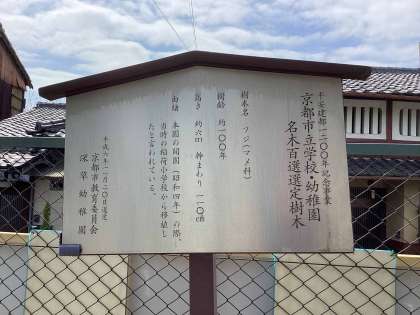 平安建都一二〇〇年記念事業
京都市立学校・幼稚園
名木百選選定樹木
樹木名 フジ(マメ科)
樹齢 約一〇〇年
高さ 約六m 幹まわり 一一〇cm
由緒 本園の開園(昭和四年)の際、
当時の稲荷小学校から移植し
たと言われている。
平成六年一一月二〇日選定
京都市教育委員会
深草幼稚園